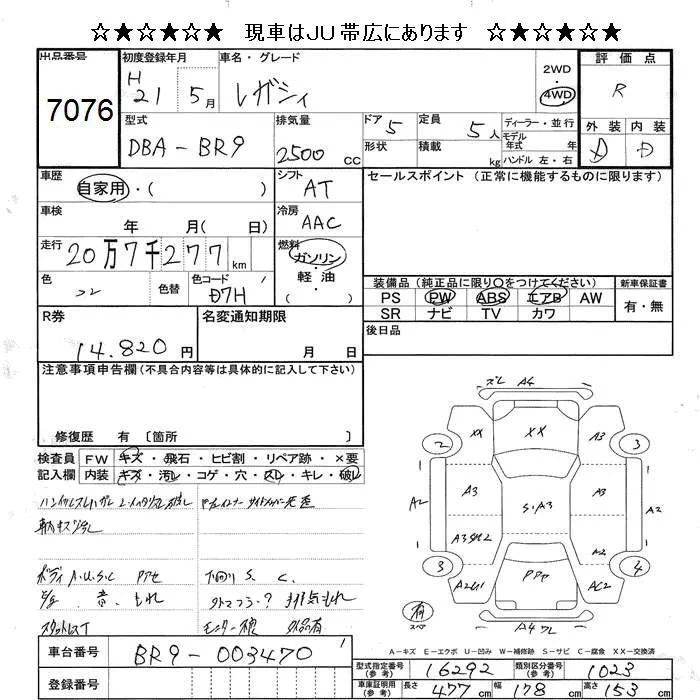 ☆★☆★☆★☆ 現車はJU帯広にあります ☆★☆★☆★☆
出品番号 7076
初度登録年月 H 21 5月
車名・グレード レガシィ
2WD 4WD
評価点 R
外装 D 内装 D
型式 DBA-BR9
排気量 2500 cc
ドア 5 定員 5人
形状 積載 kg
ディーラー・並行
モデル年式 年式
ハンドル 左・右
車歴 自家用・( )
シフト AT
セールスポイント (正常に機能するものに限ります)
車検 年 月( )
冷房 AAC
走行 20万7千277km
燃料 ガソリン・軽油 ( )
色 コン 色替 色コード D7H
装備品 (純正品に限り○をつけてください) 新車保証書
PS PW ABS エアB AW 有・無
SR ナビ TV カワ
R券 14.820円
名変通知期限 月 日
後日品
注意事項申告欄 (不具合内容等は具体的に記入して下さい)
修復歴 有 〔箇所
検査員記入欄 FW キズ・飛石・ヒビ割・リペア跡・×要
内装 キズ・汚レ・コゲ・穴・スレ・キレ・破レ
ボディ A.U.S.C 下回り S. C.
スタッドレスT
ズレ A4
XX XX A3
2 3
A2 A3 S.A3 A3 A2
A2
3 4
AC2
有 スペア
A4 ワレ
A-キズ E-エクボ U-凹み W-補修跡 S-サビ C-腐食 XX-交換済
車台番号 BR9-003470
登録番号
型式指定番号(参考) 16292 類別区分番号(参考) 1023
車庫証明用(参考) 長さ 477cm 幅 178cm 高さ 153cm